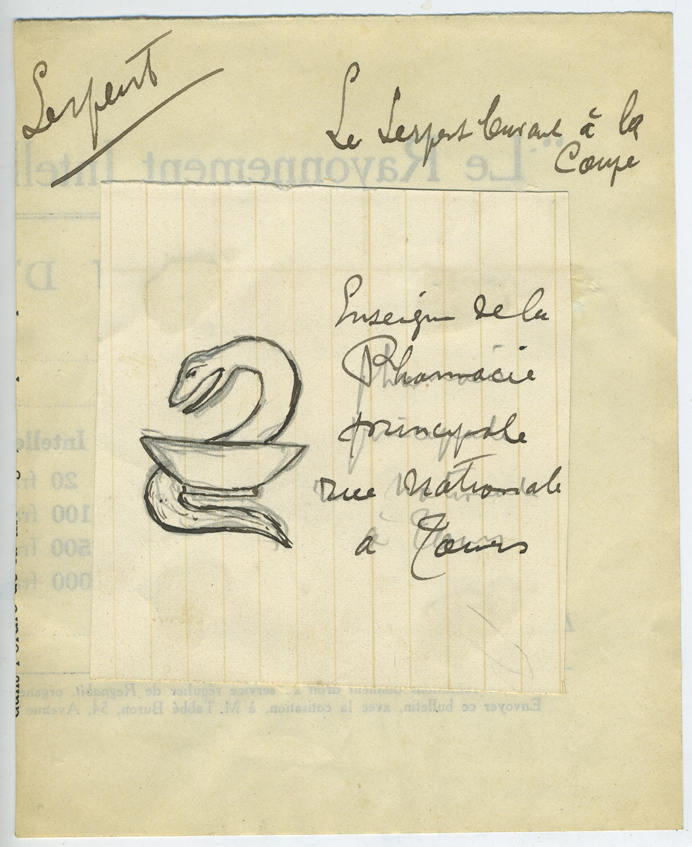 Serpent
Le Serpent buvant à la
Coupe
Enseigne de la
Pharmacie
principale
rue Nationale
à Tours
"Le Rayonnement Intell
U D'
Intelle
20 fr
100 fr
500 fr
000 fr
droit au service régulier de Regnabit, organe
Envoyer ce bulletin, avec la cotisation, à M. l'abbé Buron, 54, Avenue